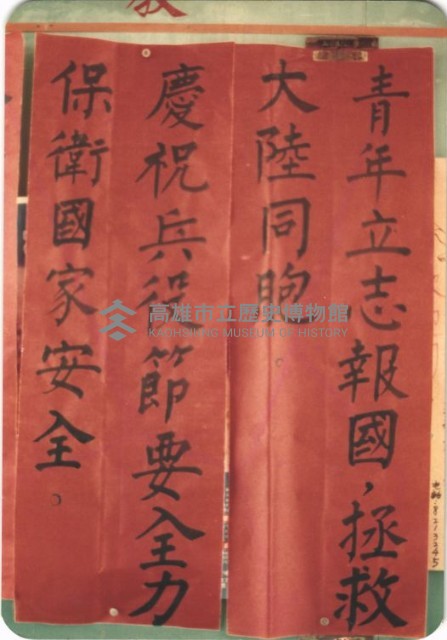 青年立志報國，拯救
大陸同胞
慶祝兵役節要全力
保衛國家安全。
高雄市立歷史博物館
KAOHSIUNG MUSEUM OF HISTORY